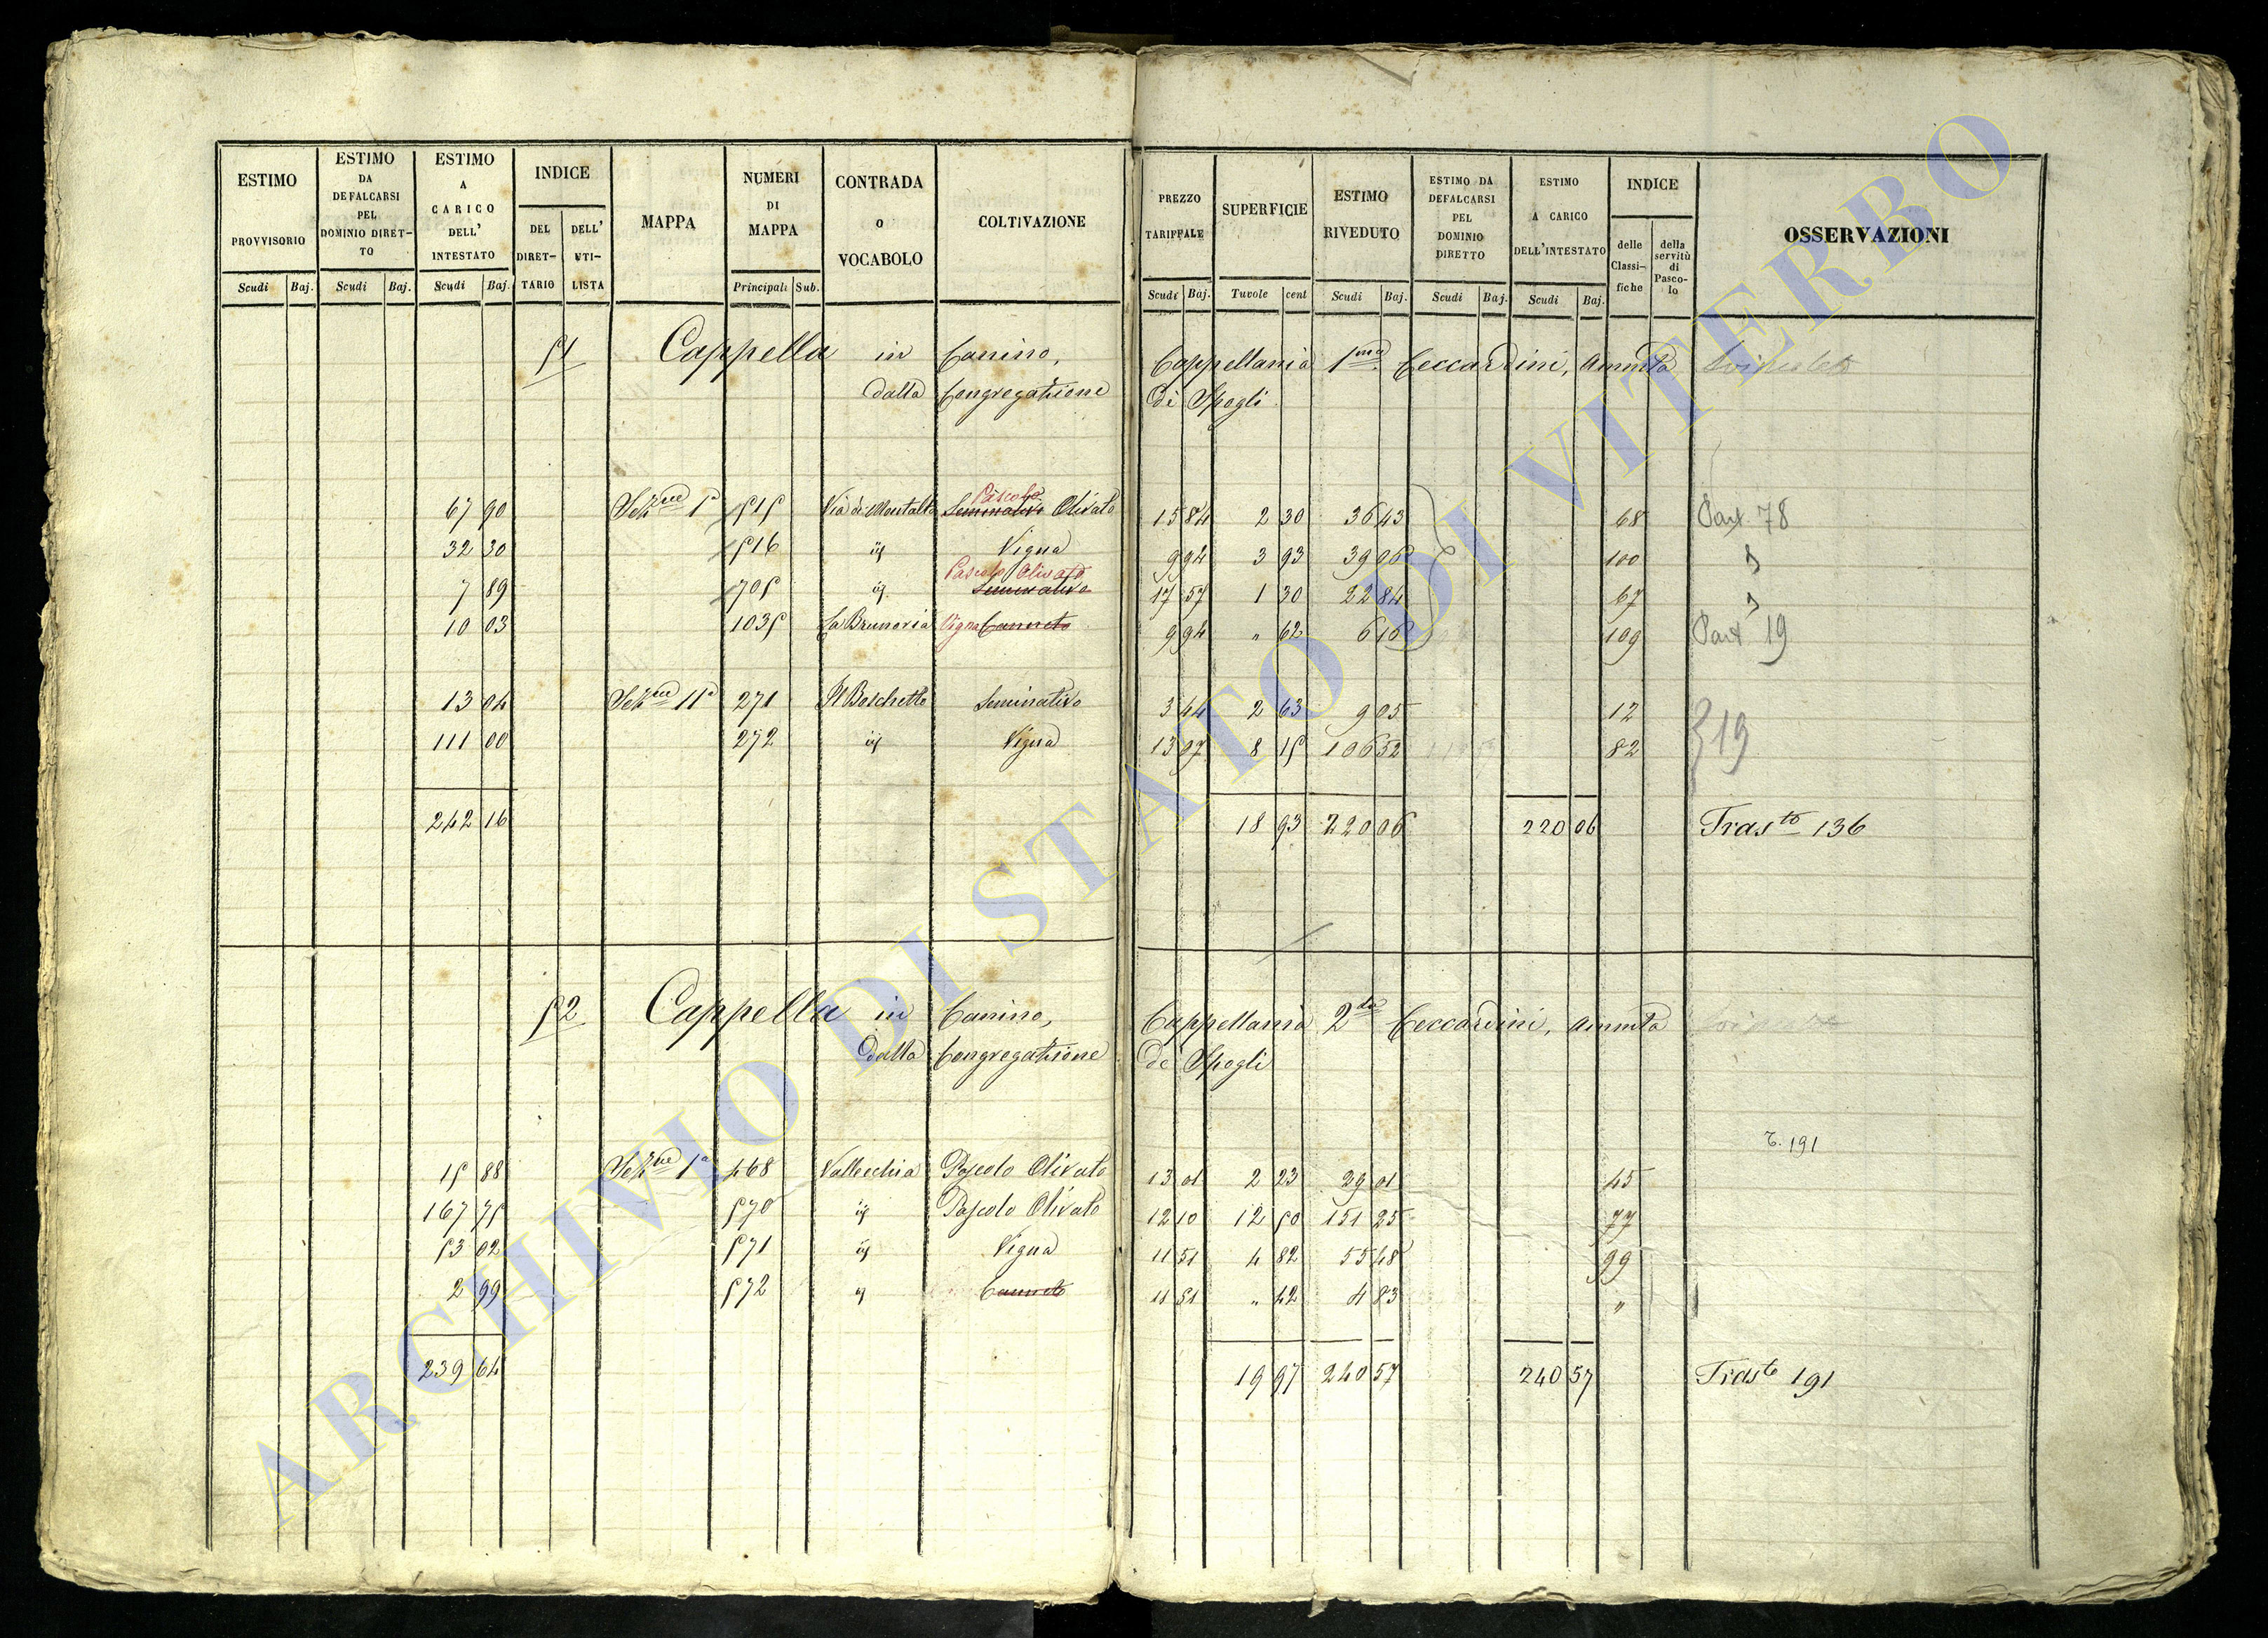 ESTIMO PROVVISORIO
ESTIMO DA DEFALCARSI PEL DOMINIO DIRETTO
ESTIMO A CARICO DELL' INTESTATO
INDICE
DEL DIRETTARIO
DELL' UTILISTA
MAPPA
NUMERI DI MAPPA
CONTRADA O VOCABOLO
COLTIVAZIONE
PREZZO TARIFFALE
SUPERFICIE
ESTIMO RIVEDUTO
ESTIMO DA DEFALCARSI PEL DOMINIO DIRETTO
ESTIMO A CARICO DELL'INTESTATO
INDICE
delle Classifiche
della servitù di Pascolo
OSSERVAZIONI
Scudi Baj. Scudi Baj. Scudi Baj. Principali Sub. Scudi Baj. Tavole cent Scudi Baj. Scudi Baj. Scudi Baj.
51 Cappella in Canino, Cappellania 1ma Ceccardini, Ammta
dalla Congregazione di Spogli
Pascolo
67 90 Sezne 1a 515 Via di Montalto Seminativo Olivato 15 84 2 30 36 43 68 Part 78
32 30 516 id Vigna 9 94 3 93 39 06 100 "
Pascolo Olivato
7 89 705 id Seminativo 17 57 1 30 22 84 67 "
10 03 1035 La Brunoria Vigna Canneto 9 94 " 62 6 16 109 Part 19
13 04 Sezne 11a 271 Il Boschetto Seminativo 3 44 2 63 9 05 12
111 00 272 id Vigna 13 07 8 15 106 52 82 19
242 16 18 93 220 06 220 06 Trasto 136
52 Cappella in Canino, Cappellania 2da Ceccardini, Ammta
dalla Congregazione de Spogli
T. 191
15 88 Sezne 1a 468 Vallecchia Pascolo Olivato 13 01 2 23 29 01 45
167 75 570 id Pascolo Olivato 12 10 12 50 151 25 77
53 02 571 id Vigna 11 51 4 82 55 48 99
2 99 572 id Canneto 11 51 " 42 4 83 "
239 64 19 97 240 57 240 57 Trasto 191
ARCHIVIO DI STATO DI VITERBO